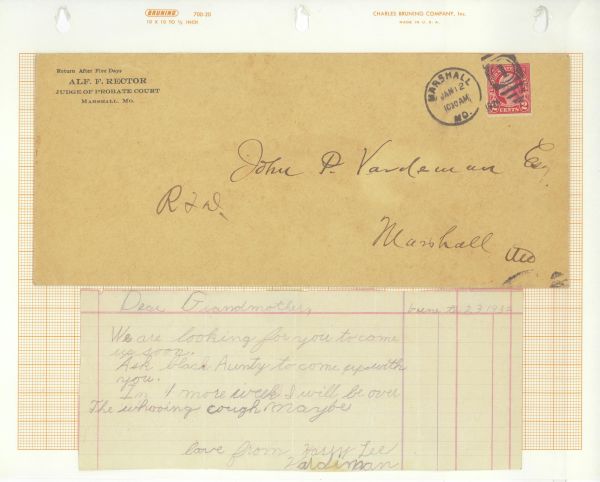 BRUNING
700-20
10 X 10 TO ½ INCH
CHARLES BRUNING COMPANY, Inc.
MADE IN U. S. A.
Return After Five Days
ALF. F. RECTOR
JUDGE OF PROBATE COURT
MARSHALL, MO.
MARSHALL
JAN 12
10 30 AM
MO.
2 CENTS 2
John P. Vardeman Esq.
R F D.
Marshall Mo
Dear Grandmother,
We are looking for you to come
up soon.
Ask black Aunty to come up with
you.
In 1 more week I will be over
The whooing cough maybe
love from Lee
Vardiman